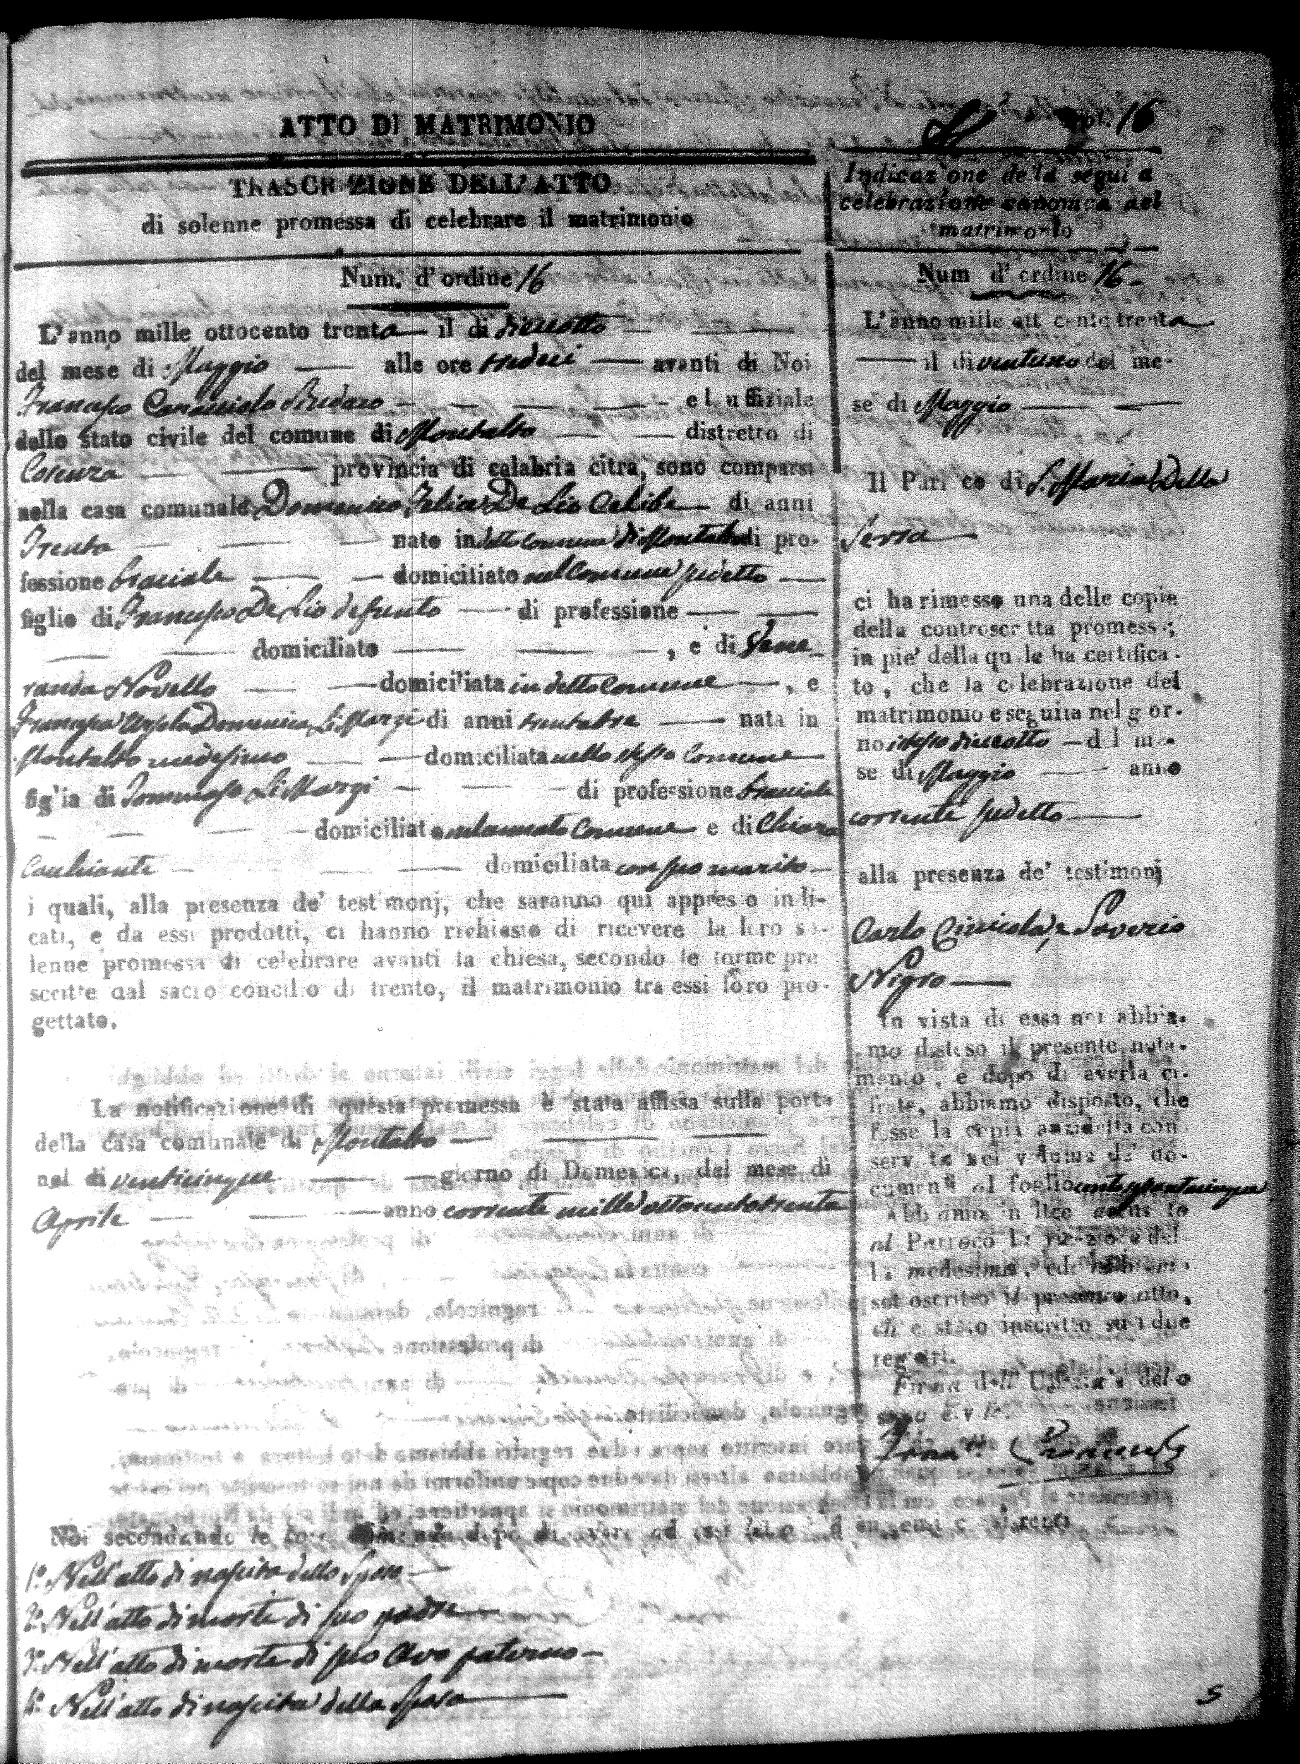 ATTO DI MATRIMONIO
16
TRASCRIZIONE DELL'ATTO
di solenne promessa di celebrare il matrimonio
Num. d'ordine 16
L'anno mille ottocento trenta il di diciotto
del mese di Maggio alle ore tredici avanti di Noi
Francesco Caracciolo Sindaco ed uffiziale
dello stato civile del comune di Montalto distretto di
Cosenza provincia di calabria citra, sono comparsi
nella casa comunale Domenico Felice De Lio Celibe di anni
Trenta nato in detto Comune di Montalto di pro-
fessione braciale domiciliato nel Comune sudetto
figlio di Francesco De Lio defunto di professione
domiciliato , e di Vene
randa Novello domiciliata in detto Comune , e
Francesca Domenica Li Marzi di anni trentatre nata in
Montalto medesimo domiciliata nello stesso Comune
figlia di Tommaso Li Marzi di professione braciale
domiciliato Comune e di Chiara
domiciliata con suo marito
i quali, alla presenza de' testimonj, che saranno qui appresso indi-
cati, e da essi prodotti, ci hanno richiesto di ricevere la loro so-
lenne promessa di celebrare avanti la chiesa, secondo le forme pre
scritte dal sacro concilio di trento, il matrimonio tra essi loro pro-
gettato.
La notificazione di questa promessa è stata affissa sulla porta
della casa comunale di Montalto
nel di venticinque giorno di Domenica, del mese di
Aprile anno corrente mille ottocentotrenta
Noi secondando le loro dimande dopo di aver ad essi
1°. Nell'atto di nascita dello Sposo
2°. Nell'atto di morte di suo padre
3°. Nell'atto di morte di suo Avo paterno
4°. Nell'atto di nascita della Sposa
Indicazione della seguita
celebrazione canonica del
matrimonio
Num d'ordine 16
L'anno mille ottocento trenta
il di ventuno del me-
se di Maggio
Il Parroco di S. Maria Della
Serra
ci ha rimesso una delle copie
della controscritta promessa,
in pie' della quale ha certifica-
to, che la celebrazione del
matrimonio e seguita nel gior-
no istesso diciotto del me-
se di Maggio anno
corrente sudetto
alla presenza de' testimonj
Carlo e Saverio
Nigro
In vista di essa noi abbia-
mo disteso il presente nota-
mento, e dopo di averla ci-
frata, abbiamo disposto, che
fosse la copia anzidetta con
servata nel volume de' do-
cumenti al foglio
Abbiamo in oltre
al Parroco la del
la medesima, ed abbiamo
sottoscritto il presente atto,
ch'e stato inscritto su i due
registri.
Firma dell' Uffiziale dello
stato civile.
5